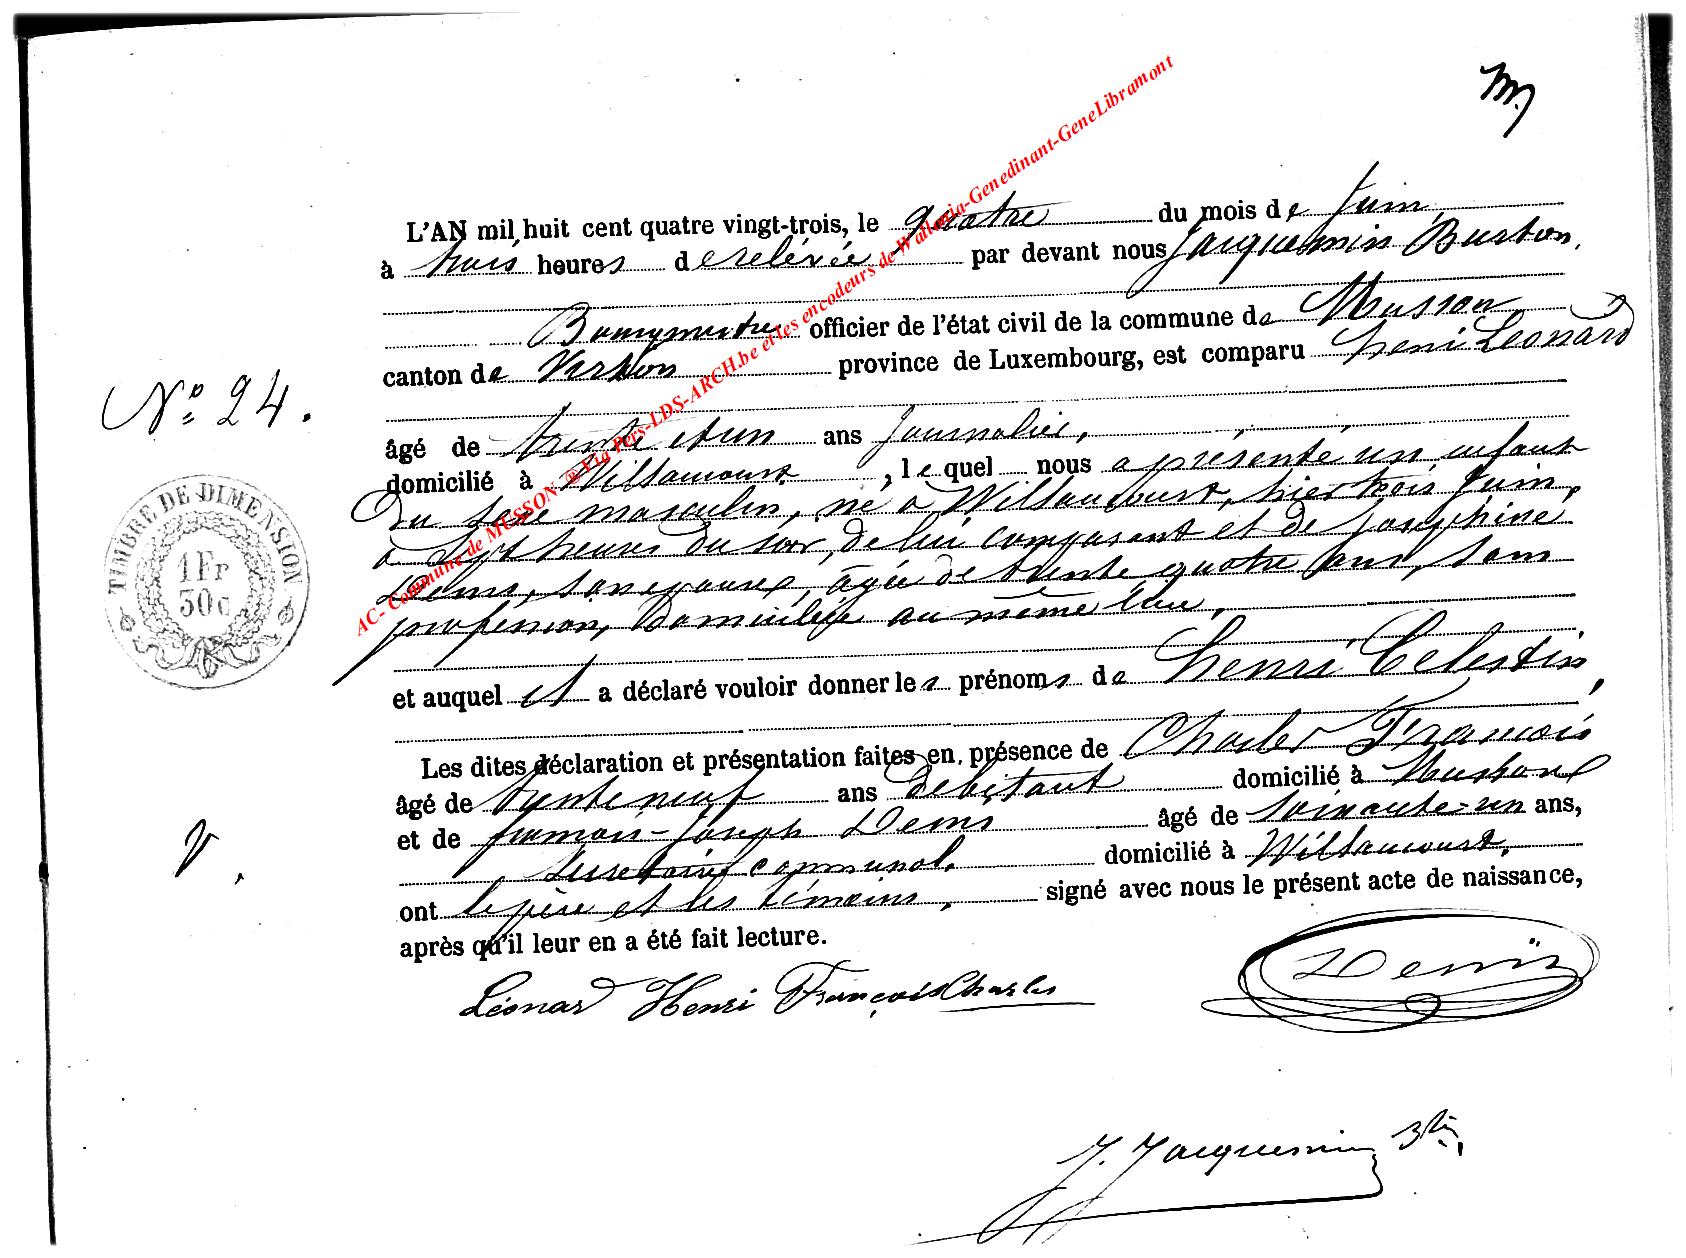 L'AN mil huit cent quatre vingt-trois, le quatre du mois de Juin,
à trois heures de relevée par devant nous Jacquemin Burton,
Bourgmestre officier de l'état civil de la commune de Musson
canton de Virton province de Luxembourg, est comparu henri Léonard
N° 24.
âgé de trente et un ans Journalier,
domicilié à Willancourt, lequel nous a présenté un enfant
du sexe masculin, né à Willancourt, hier trois Juin,
à sept heures du soir, de lui comparant et de Josephine
Denis, son epouse, âgée de trente quatre ans, sans
profession, domiciliée au même lieu,
et auquel il a déclaré vouloir donner les prénoms de henri Celestin,
Les dites déclaration et présentation faites en présence de Charles François
âgé de trente neuf ans débitant domicilié à Musson
et de francois-Joseph Denis âgé de soixante=un ans,
secretaire communal. domicilié à Willancourt,
ont le père et les témoins, signé avec nous le présent acte de naissance,
après qu'il leur en a été fait lecture.
Léonard Henri François Charles Denis
J. Jacquemin Btin.
TIMBRE DE DIMENSION
1 Fr
30 c
AC- Commune de MUSSON @ Via Pers-LDS-ARCH.be et les encodeurs de Wallonia-Genedinant-GeneLibramont